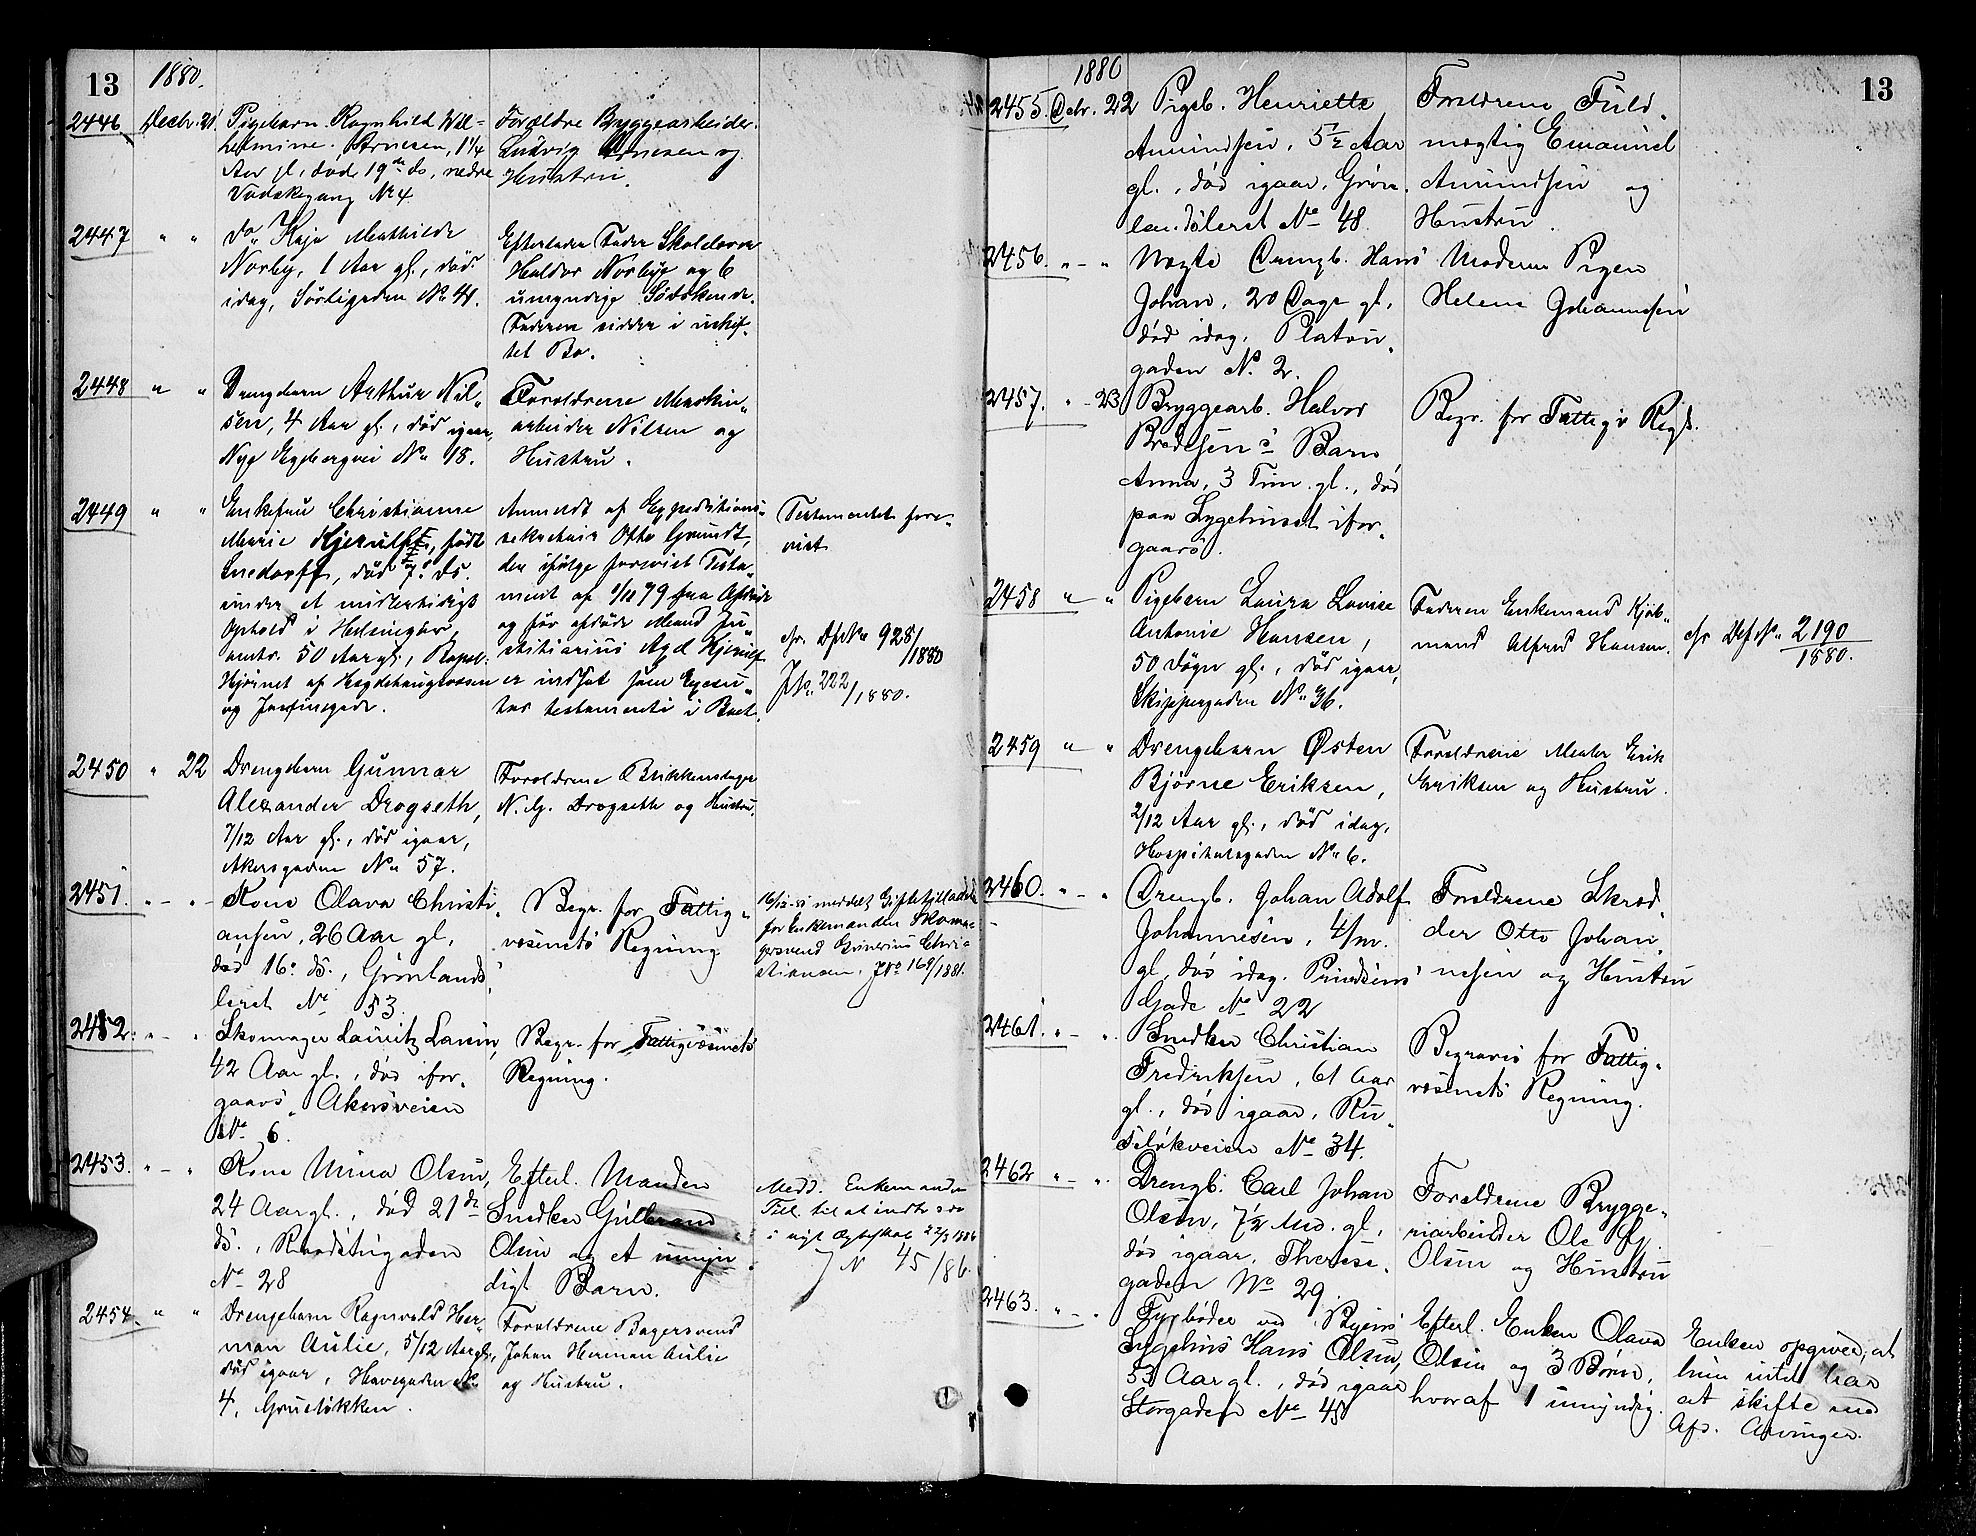 13
1880.
2446 Decbr. 21. Pigebarn Ragnhild Wil-
helmine Arnesen, 1 1/4
Aar gl., død 19de ds, nedre
Vadskegang No 4
Forældre Bryggearbeider
Ludvig Arnesen og
Hustru.
2447 " " do Kaja Mathilde
Norby, 1 Aar gl., død
idag,
Efterlader Fader
Haldor Norbye og 6
umyndige Sødskende.
Faderen sidder i uskif-
tet Bo.
2448 " " Drengebarn Arthur Nil-
sen, 4 Aar gl., død igaar,
Nye Egebergvei No 18.
Forældrene Maskin-
arbeider Nilsen og
Hustru.
2449 " " Enkefru Christianne
Marie Kjerulff, født
død 7de ds.
under et midlertidigt
Ophold i Helsingørs
amt. 50 Aar gl.,
af Hegdehaugveien
og Josefinegade.
Anmeldt af Expeditions-
sekretair Otto Grundt,
den ifølge forevist Testa-
ment af 1/11 79 fra Afdøde
og før afdøde Mand Ju-
stitiarius Kjerulf
er indsat som Execu-
tor testamenti i Boet.
Testamentet fore-
vist
cfr. Df No 928/1880
JNo. 222/1880.
2450 " 22 Drengebarn Gunnar
Alexander Drogseth,
7/12 Aar gl., død igaar,
Akersgaden No 57.
Forældrene Blikkenslager
N. G. Drogseth og Hustru.
2451. " - " - Kone Olava Christi-
ansen, 26 Aar gl.
død 16de ds., Grønlands-
leret No 53.
Begr. for Fattig-
væsenets Regning
16/12-81 meddelt Giftetilladelse
for Enkemanden Skoma-
gersvend Chri-
stiansen. JNo 169/1881.
2452. " - " Skomager Lauritz Larsen,
42 Aar gl., død ifor-
gaars, Akersveien
No 6.
Begr. for Fattigvæsenets
Regning.
2453. " - " Kone Mina Olsen,
24 Aar gl., død 21de
ds., Raadstugaden
No 28
Efterl. Manden
Snedker Gulbrand
Olsen og et umyn-
digt Barn.
Medd. Enkemanden
Till. til at indtræde
i nyt Ægteskab 22/3 1886
J N 45/86.
2454. " " Drengebarn Ragnvald Her-
man Aulie, 5/12 Aar gl.,
død igaar, Havegaden No
4, Grünerløkken.
Forældrene Bagersvend
Johan Herman Aulie
og Hustru.
13
1880
2455. Decbr. 22 Pigeb. Henriette
Amundsen, 5 1/2 Aar
gl., død igaar, Grøn-
landsleret No 48.
Forældrene Fuld-
mægtig Emanuel
Amundsen og
Hustru.
2456. " - " Uægte Drengb. Hans
Johan, 20 Dage gl.,
død idag, Platou-
gaden No 2.
Moderen Pigen
Helene Johannesen
2457. " - 23 Bryggearb. Halvor
Bredesens Barn
Anna, 3 Tim. gl., død
paa Sygehuset ifor-
gaars.
Begr. for Fattigv. Regs.
2458 " " Pigebarn Laura Lovise
Antonie Hansen,
50 Døgn gl., død igaar,
Skippergaden No 36.
Faderen Enkemand Kjøb-
mand Alfred Hansen.
cfr Df No 2190
1880.
2459 " " Drengebarn Østen
Bjørne Eriksen,
2/12 Aar gl., død idag,
Hospitalsgaden No 6.
Forældrene Maler Erik
Eriksen og Hustru.
2460. " - " Drengb. Johan Adolf
Johannesen, 4/m.
gl., død idag. Prindsens
Gade No 22
Forældrene Skræd-
der Otto Johan-
nesen og Hustru
2461. " - " Snedker Christian
Fredriksen, 61 Aar
gl., død igaar, Ru-
seløkveien No 34.
Begraves for Fattig-
væsenets Regning.
2462 " - " Drengb. Carl Johan
Olsen, 7 1/2 Md. gl.,
død igaar, Therese-
gaden No 29.
Forældrene Brygge-
riarbeider Ole
Olsen og Hustru
2463. " - " Fyrbøder ved Byens
Sygehus Hans Olsen,
53 Aar gl., død igaar
Storgaden No 48
Efterl. Enken Olava
Olsen og 3 Børn,
hvoraf 1 umyndig.
Enken opgiver, at
hun intet har
at skifte med
Afd. Arvinger.